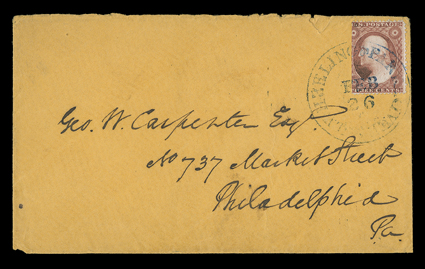 U.S. POSTAGE
THREE CENTS
FEB
26
Geo. W. Carpenter Esq.
No 737 Market Street
Philadelphia
Pa.